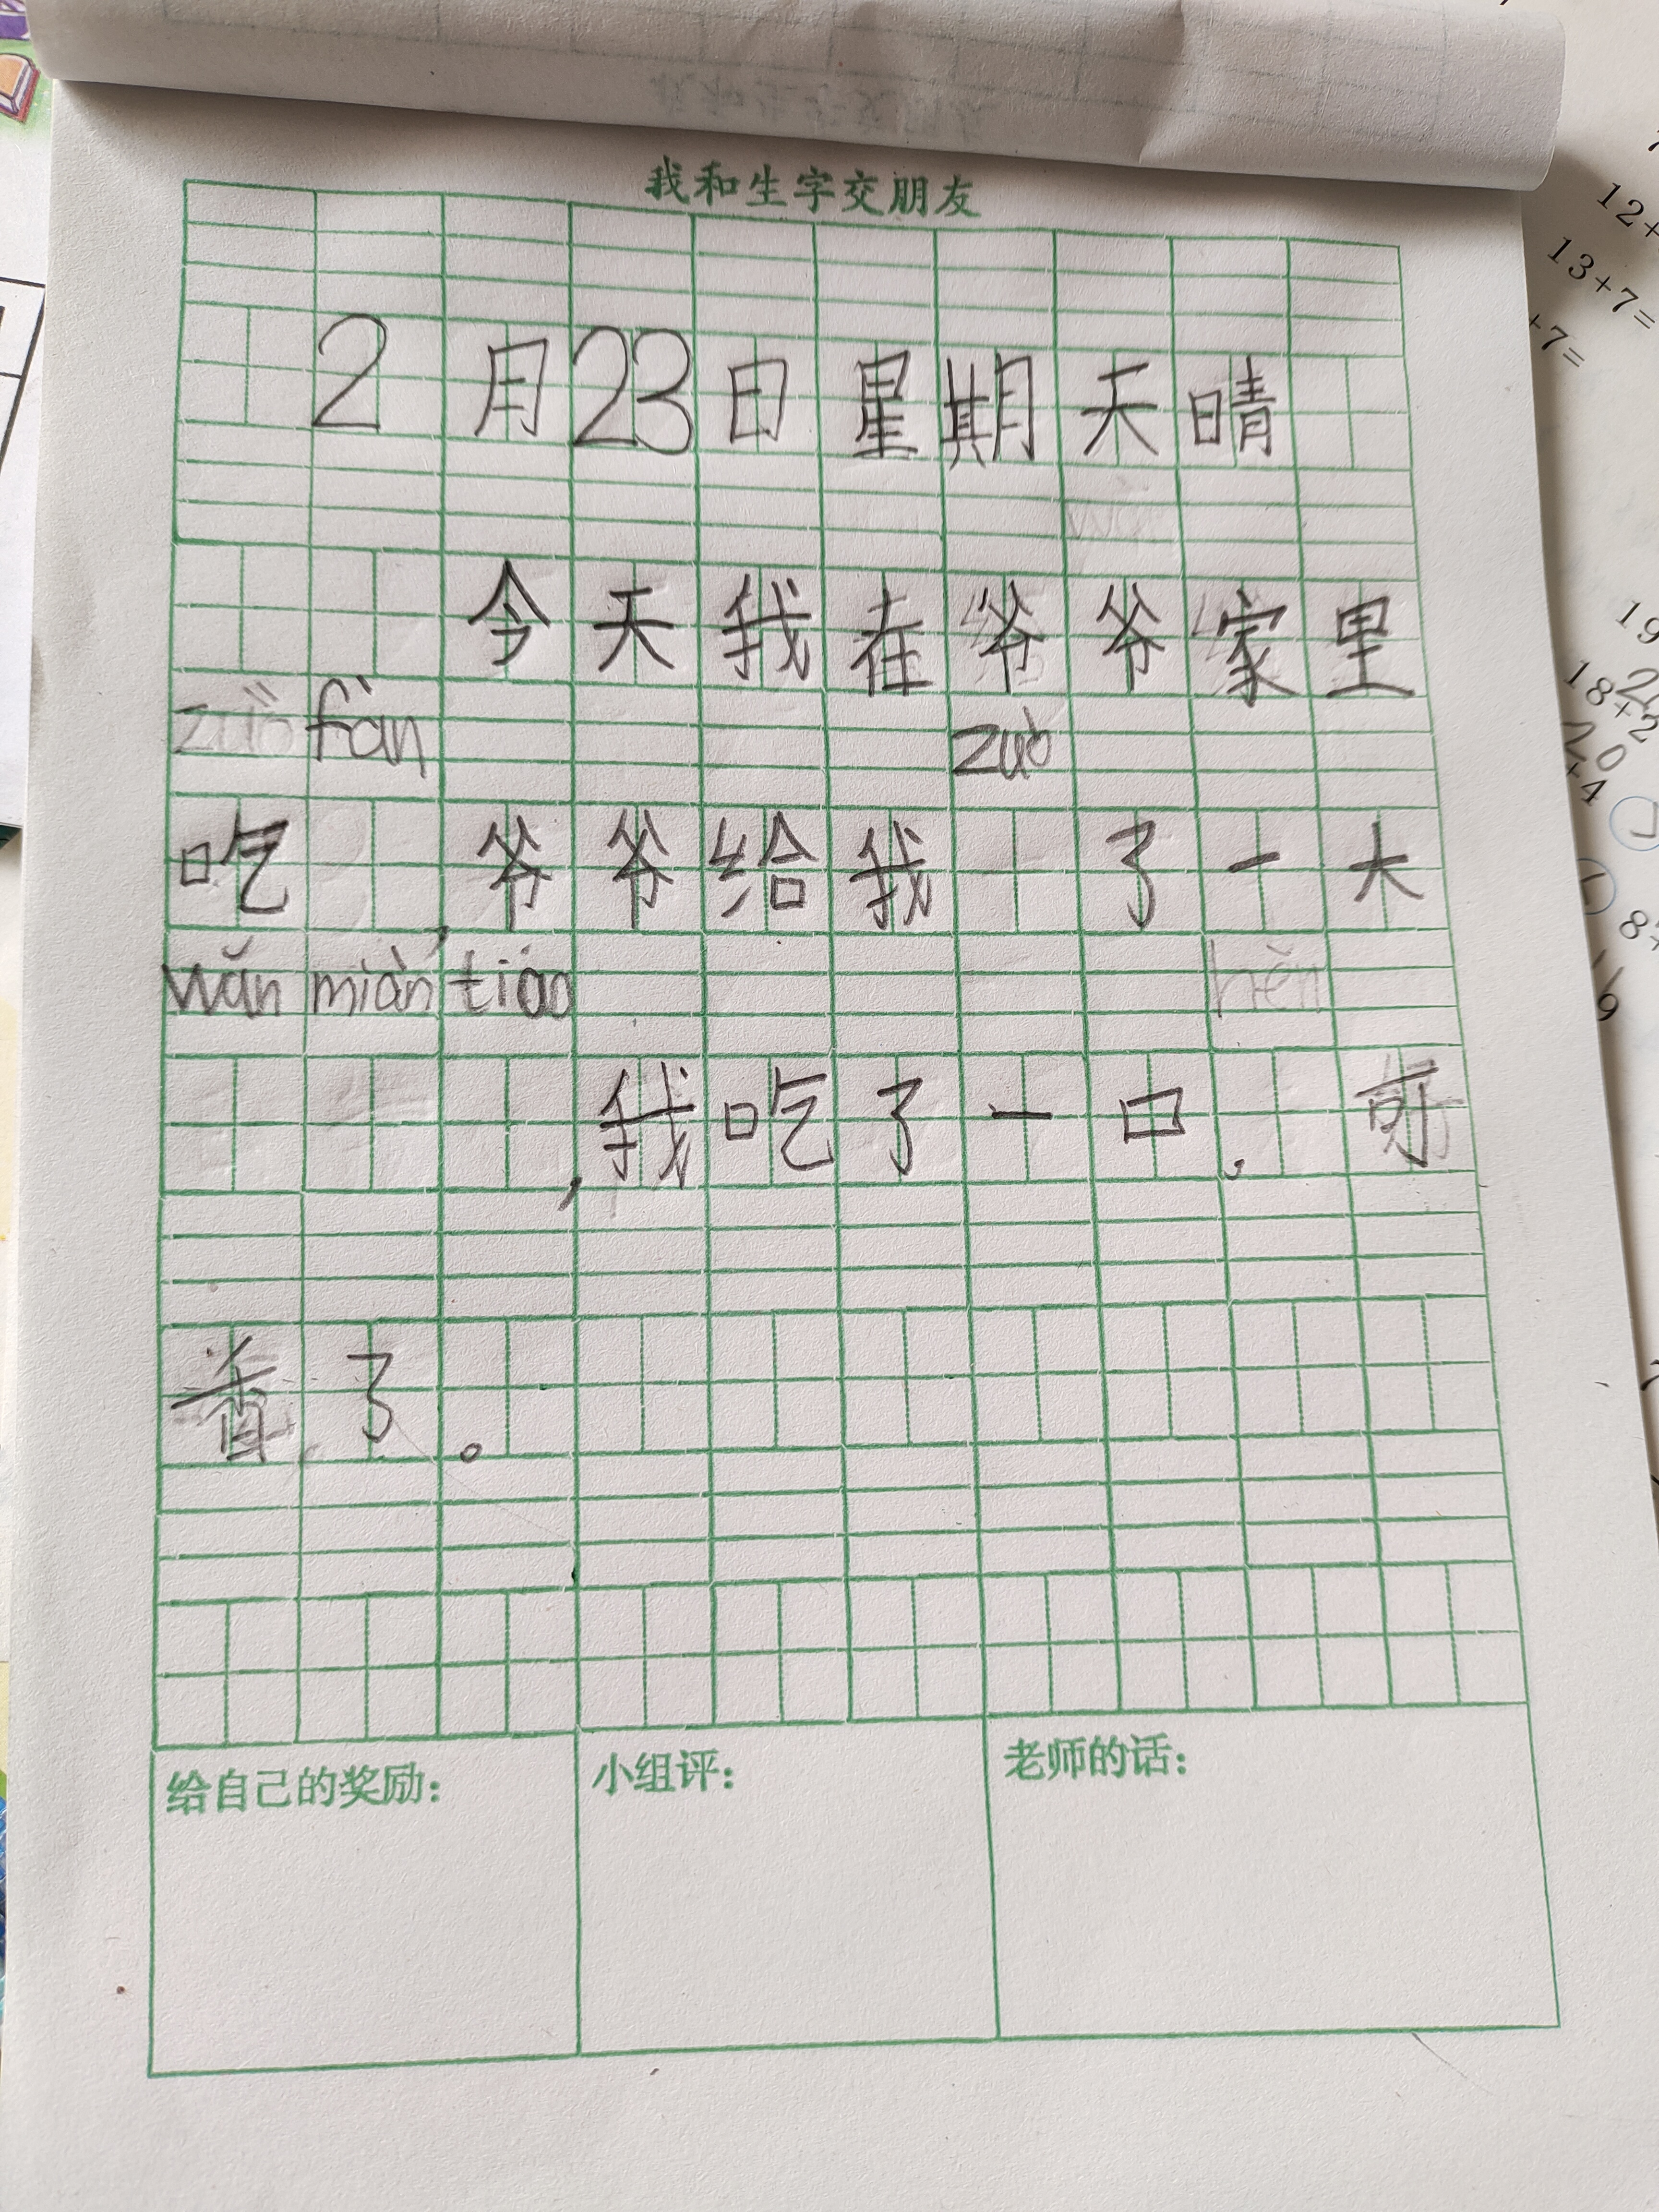 我和生字交朋友
2月23日星期天晴
今天我在爷爷家里
fàn zuò
吃 爷爷给我 了一大
wǎn miàn tiáo
,我吃了一口,可
香了。
给自己的奖励:
小组评:
老师的话:
12+
13+7=
+7=
19
18+2
20
+4
8+
9